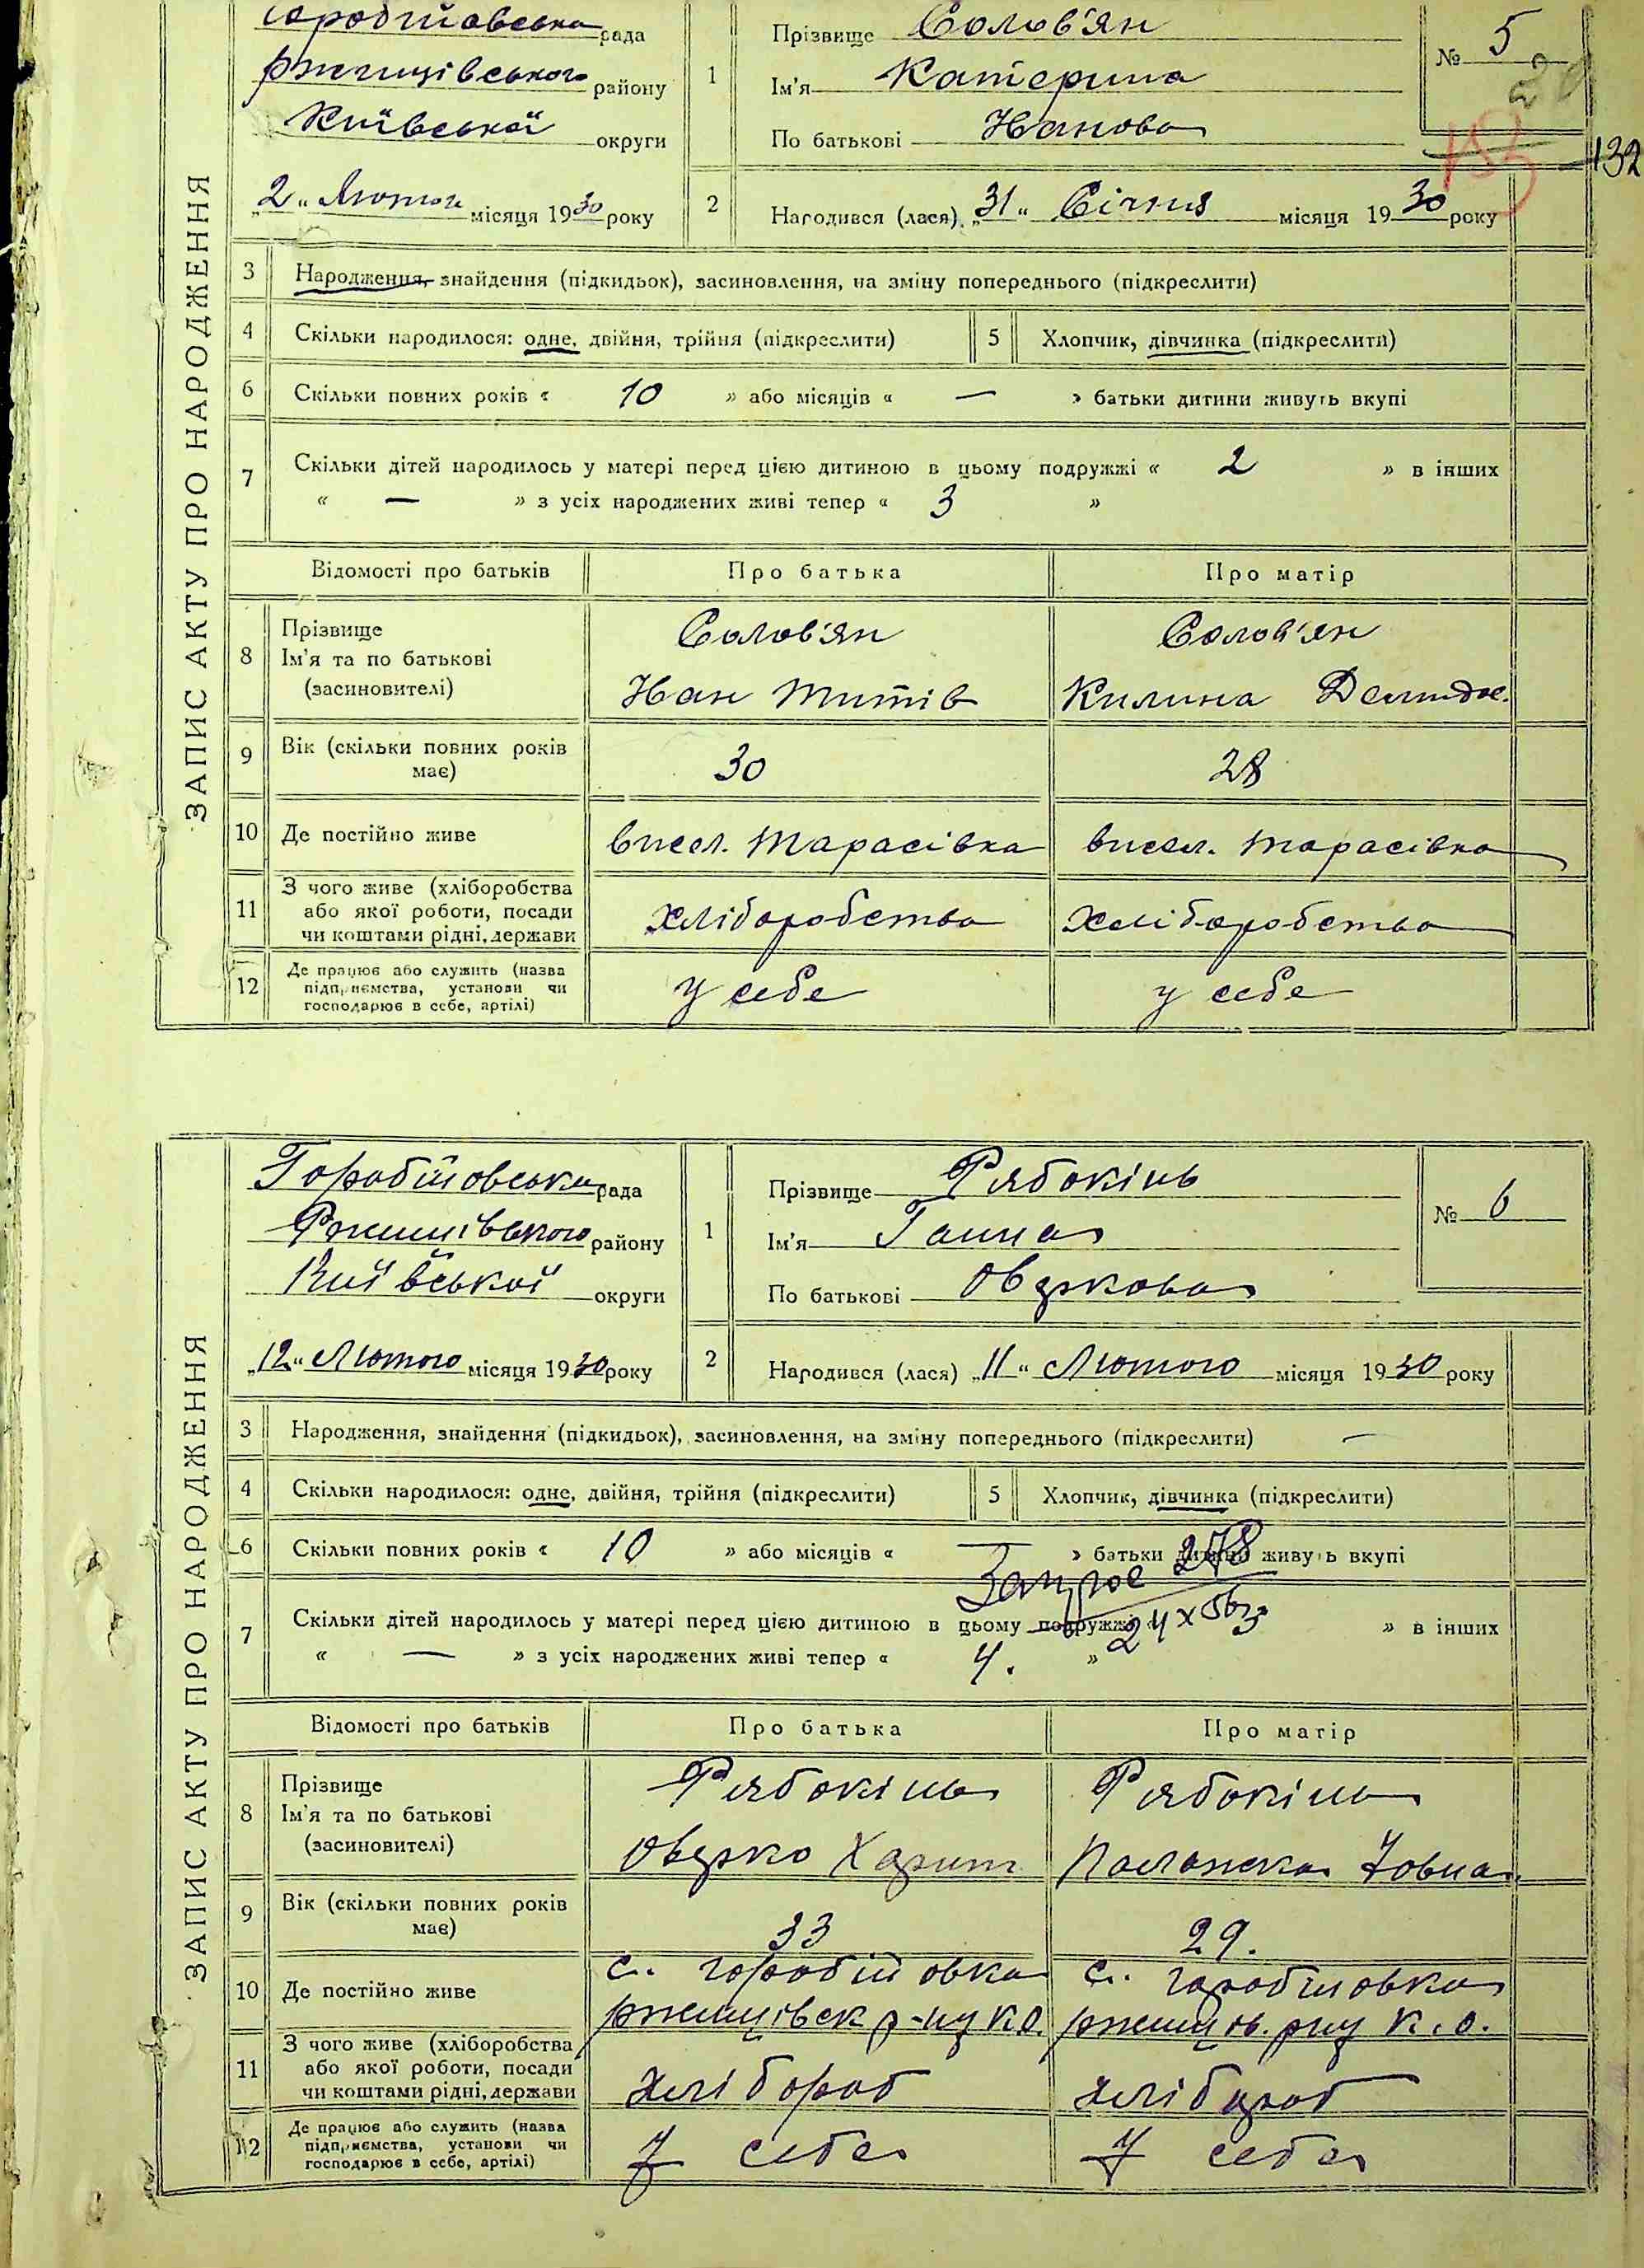 ЗАПИС АКТУ ПРО НАРОДЖЕННЯ
рада
Ржищівського району
Київської округи
„2“ Лютого місяця 1930 року
1
Прізвище Солов'ян
Ім'я Катерина
По батькові Іванова
№ 5
132
2
Народився (лася) „31“ Січня місяця 1930 року
3 Народження, знайдення (підкидьок), засиновлення, на зміну попереднього (підкреслити)
4 Скільки народилося: одне, двійня, трійня (підкреслити)
5 Хлопчик, дівчинка (підкреслити)
6 Скільки повних років « 10 » або місяців « — » батьки дитини живуть вкупі
7 Скільки дітей народилось у матері перед цією дитиною в цьому подружжі « 2 » в інших
« — » з усіх народжених живі тепер « 3 »
Відомості про батьків Про батька Про матір
8 Прізвище
Ім'я та по батькові
(засиновителі)
Солов'ян
Іван Титів
Солов'ян
Килина
9 Вік (скільки повних років
має)
30
28
10 Де постійно живе
висел. Тарасівка
висел. Тарасівка
11 З чого живе (хліборобства
або якої роботи, посади
чи коштами рідні, держави
Хліборобство
Хліборобство
12 Де працює або служить (назва
підприємства, установи чи
господарює в себе, артілі)
у себе
у себе
ЗАПИС АКТУ ПРО НАРОДЖЕННЯ
Горобіїовська рада
Ржищівського району
Київської округи
„12“ Лютого місяця 1930 року
1
Прізвище Рябокінь
Ім'я Ганна
По батькові Овдркова
№ 6
2
Народився (лася) „11“ Лютого місяця 1930 року
3 Народження, знайдення (підкидьок), засиновлення, на зміну попереднього (підкреслити) —
4 Скільки народилося: одне, двійня, трійня (підкреслити)
5 Хлопчик, дівчинка (підкреслити)
6 Скільки повних років « 10 » або місяців « — » батьки дитини живуть вкупі
7 Скільки дітей народилось у матері перед цією дитиною в цьому подружжі « » в інших
« — » з усіх народжених живі тепер « 4. »
Відомості про батьків Про батька Про матір
8 Прізвище
Ім'я та по батькові
(засиновителі)
Рябокінь
Харит
Рябокінь
9 Вік (скільки повних років
має)
33
29.
10 Де постійно живе
с. Горобіїовка
Ржищівськ р-ну К.О.
с. Горобіїовка
Ржищів. рну К.О.
11 З чого живе (хліборобства
або якої роботи, посади
чи коштами рідні, держави
хлібороб
хлібороб
12 Де працює або служить (назва
підприємства, установи чи
господарює в себе, артілі)
У себе
У себе